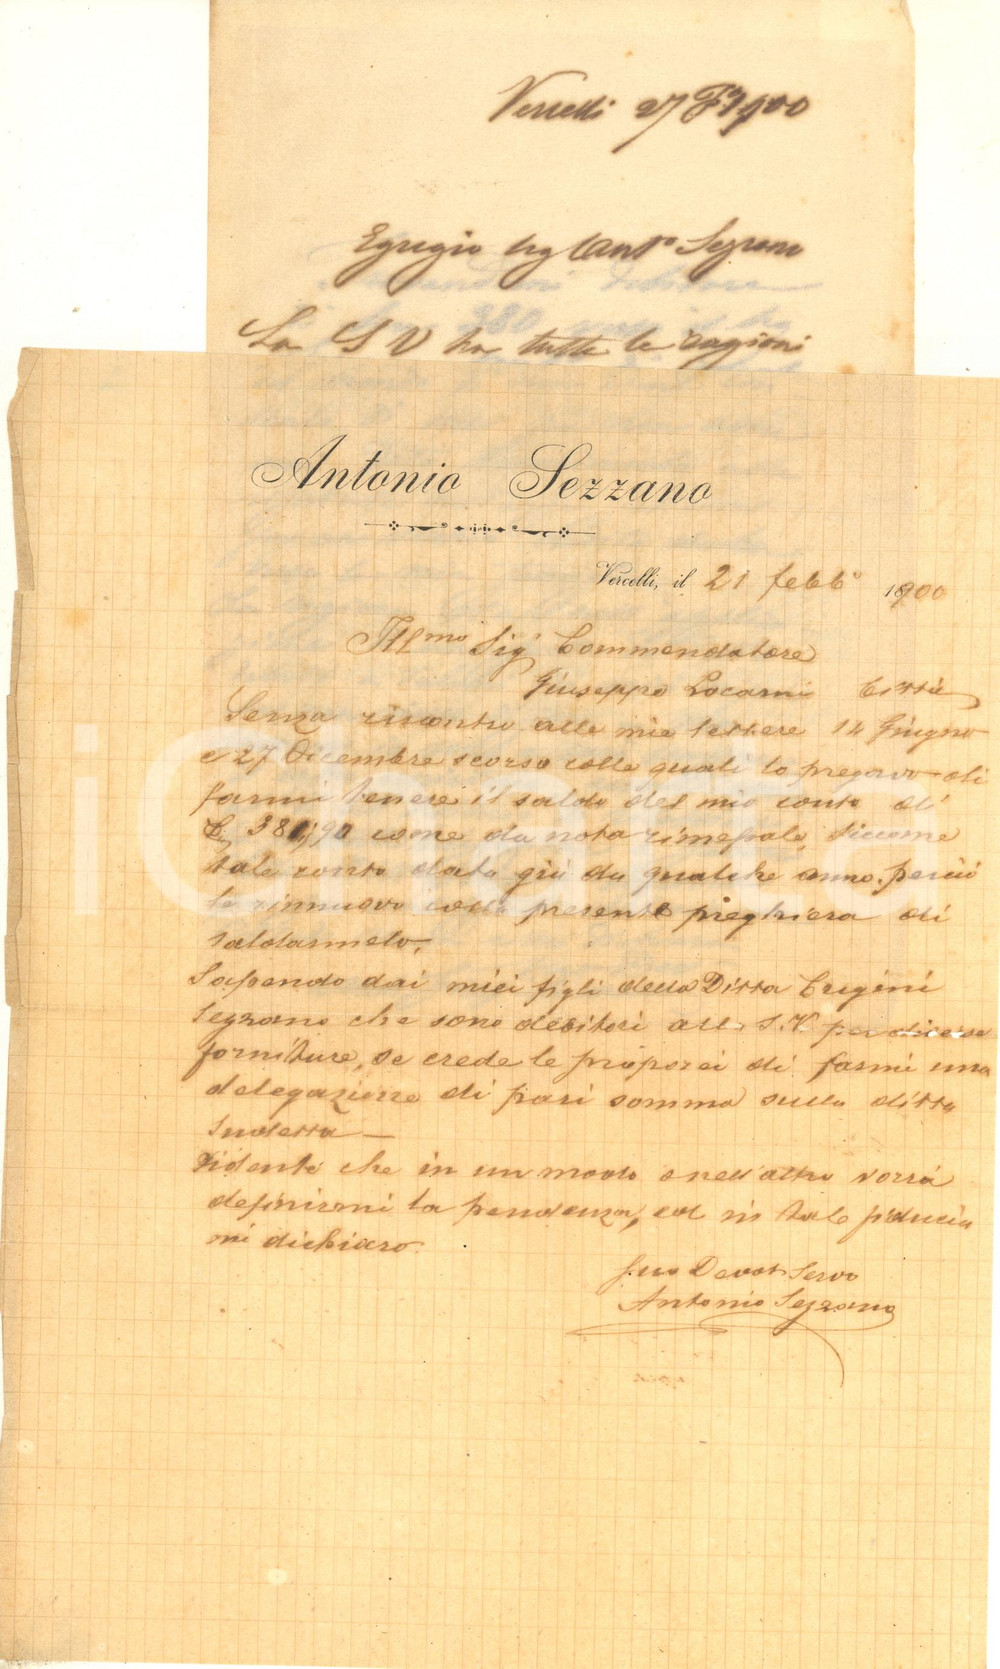 Vercelli 27 F° 1900
Egregio Sig Ant° Sezzano
La S V ha tutte le ragioni
Antonio Sezzano
Vercelli, il 21 febb° 1900
Ill.mo Sig.r Commendatore
Giuseppe Locarni Città
Senza riscontro alle mie lettere 14 Giugno
e 27 Dicembre scorso colle quali la pregavo di
farmi tenere il saldo del mio conto di
L. 380,90 come da nota rimessale, siccome
tale conto data già da qualche anno, perciò
le rinnovo colla presente preghiera di
saldarmelo.
Sapendo dai miei figli della Ditta Erigini
Sezzano che sono debitori alla S.V. per diverse
forniture, se crede le proporei di farmi una
delegazione di pari somma sulla ditta
sudetta —
Fidente che in un modo o nell'altro vorrà
definirmi la pendenza, ed in tale fiducia
mi dichiaro.
Suo Devot Servo
Antonio Sezzano